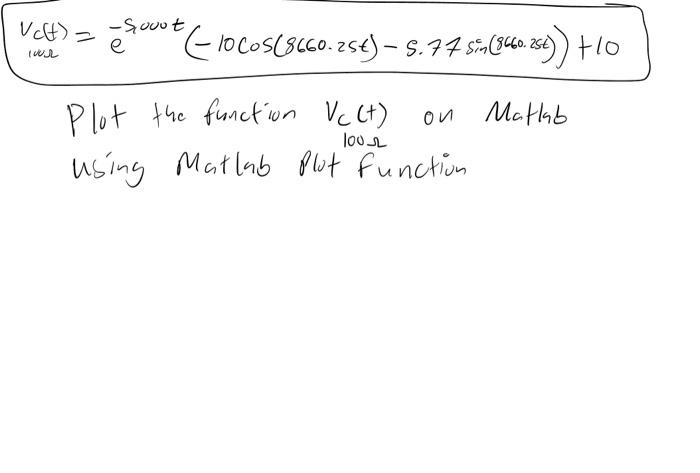 Vc(t) = e^-5,000t (-10cos(8660.25t) - 5.77 sin(8660.25t)) + 10
100Ω
Plot the function Vc(t) on Matlab
100Ω
using Matlab Plot function